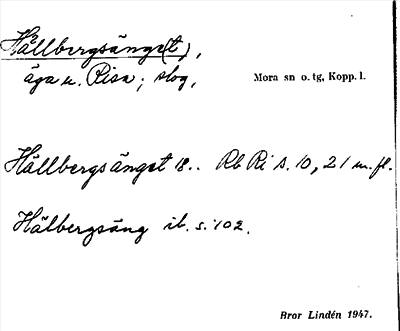 Hällbergsänge(t),
äga u. Risa; slog,
Mora sn o. tg, Kopp. l.
Hällbergsänget 18.. Rb Ri s. 10, 21 m.fl.
Hälbergsäng ib. s. 102.
Bror Lindén 1947.